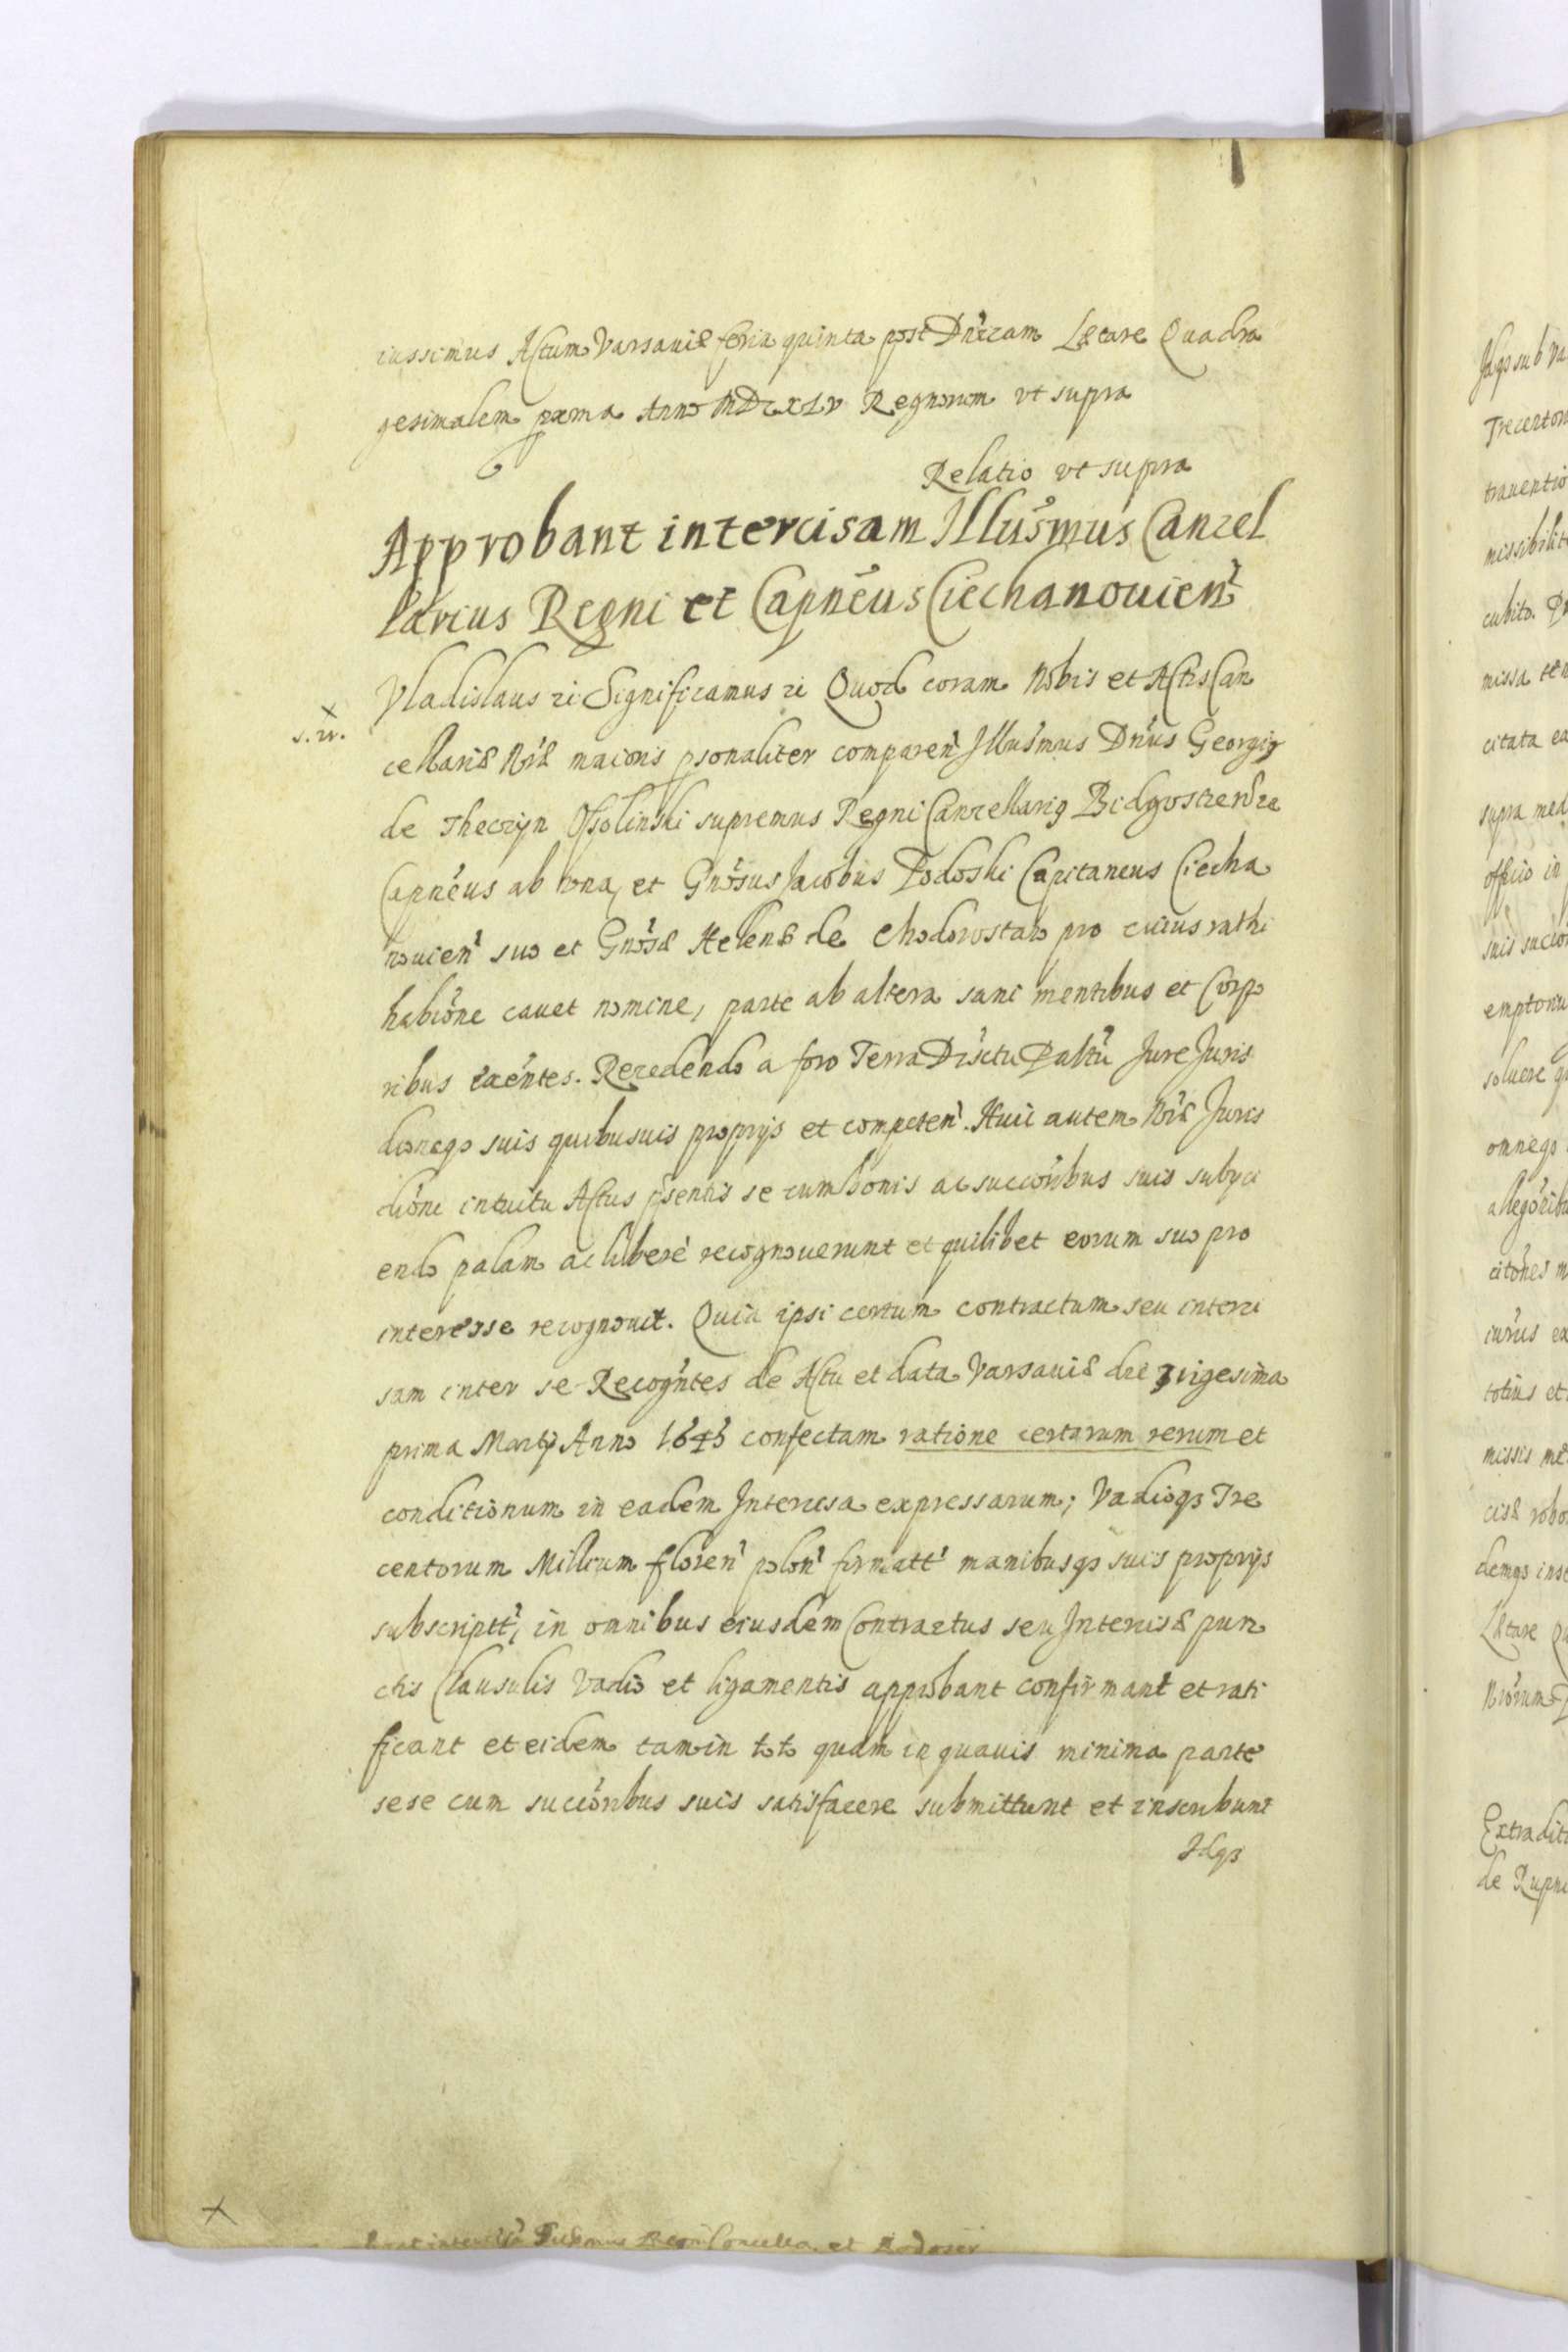 iussimus Actum Varsaviæ feria quinta post Dn̄icam Lætare Quadra
gesimalem proxma Anno MDCXLV Regnorum vt supra
Relatio vt supra
Approbant intercisam Illus̄mus Cancel
larius Regni et Capnēus Ciechanouien̄
Vladislaus &c Significamus &c Quod coram Nobis et Actis Can
s. w.
cellariæ Nr̄æ maioris psonaliter comparen̄ Illus̄mus Dn̄us Georgi9
de Theczyn Ossolinski supremus Regni Cancellari9 Bidgostien&c
Capnēus ab vna, et Gn̄osus Jacobus Podoski Capitaneus Ciecha
nouien̄ suo et Gn̄osæ Helenæ de Chodorostaw pro cuius rathi
habiōne cauet nomine, parte ab altera sani mentibus et Corpo
ribus exēntes. Recedendo a foro Terra Districtu Paltū Jure Juris
dioneq3 suis quibusuis proprijs et competen̄. Huic autem Nr̄æ Juris
diōni intuitu Actus p̄sentis se cum bonis ac succōribus suis subyci
endo palam ac liberè recognouerunt et quilibet eorum suo pro
interesse recognouit. Quia ipsi certum contractum seu interci
sam inter se Recogn̄tes de Actu et data Varsaviæ die vigesima
prima Martij Anno 1645 confectam ratione certarum rerum et
conditionum in eadem Intercisa expressarum; Vadioq3 Tre
centorum Millium floren̄ polon̄ firmatt̄ manibusq3 suis proprijs
subscriptt̄, in omnibus eiusdem Contractus seu Intercisæ pun
ctis Clausulis Vadio et ligamentis approbant confirmant et rati
ficant et eidem tam in toto quam in quauis minima parte
sese cum succōribus suis satisfacere submittunt et inscribunt
Idq3
Idq3 sub Va
Trecenton
trauentio
missibilit
cubito. D
missa ten
citata ea
supra med
officio in
suis succō
emptoriu
soluere q
omneq3
allegōrib
citōnes m
iurus ex
totius et
missis me
cisæ robo
demq3 ins
Lætare Qu
Nrōrum P
Extradit
de Rupni